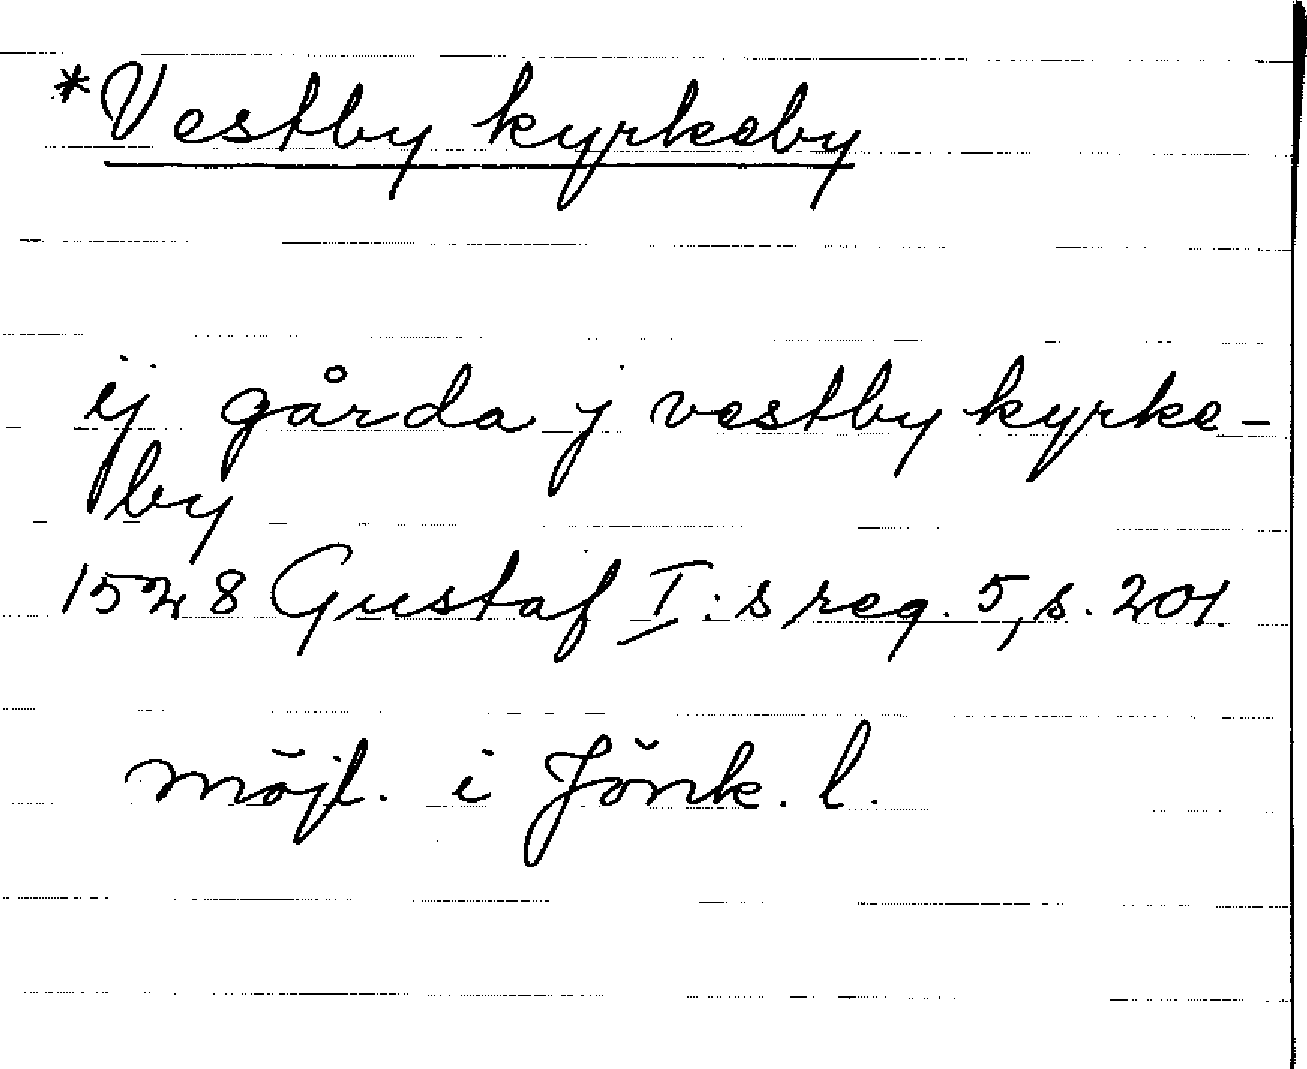 *Vestby kyrkeby
ij gårda j vestby kyrke-
by
1528 Gustaf I:s reg. 5, s. 201.
möjl. i Jönk. l.